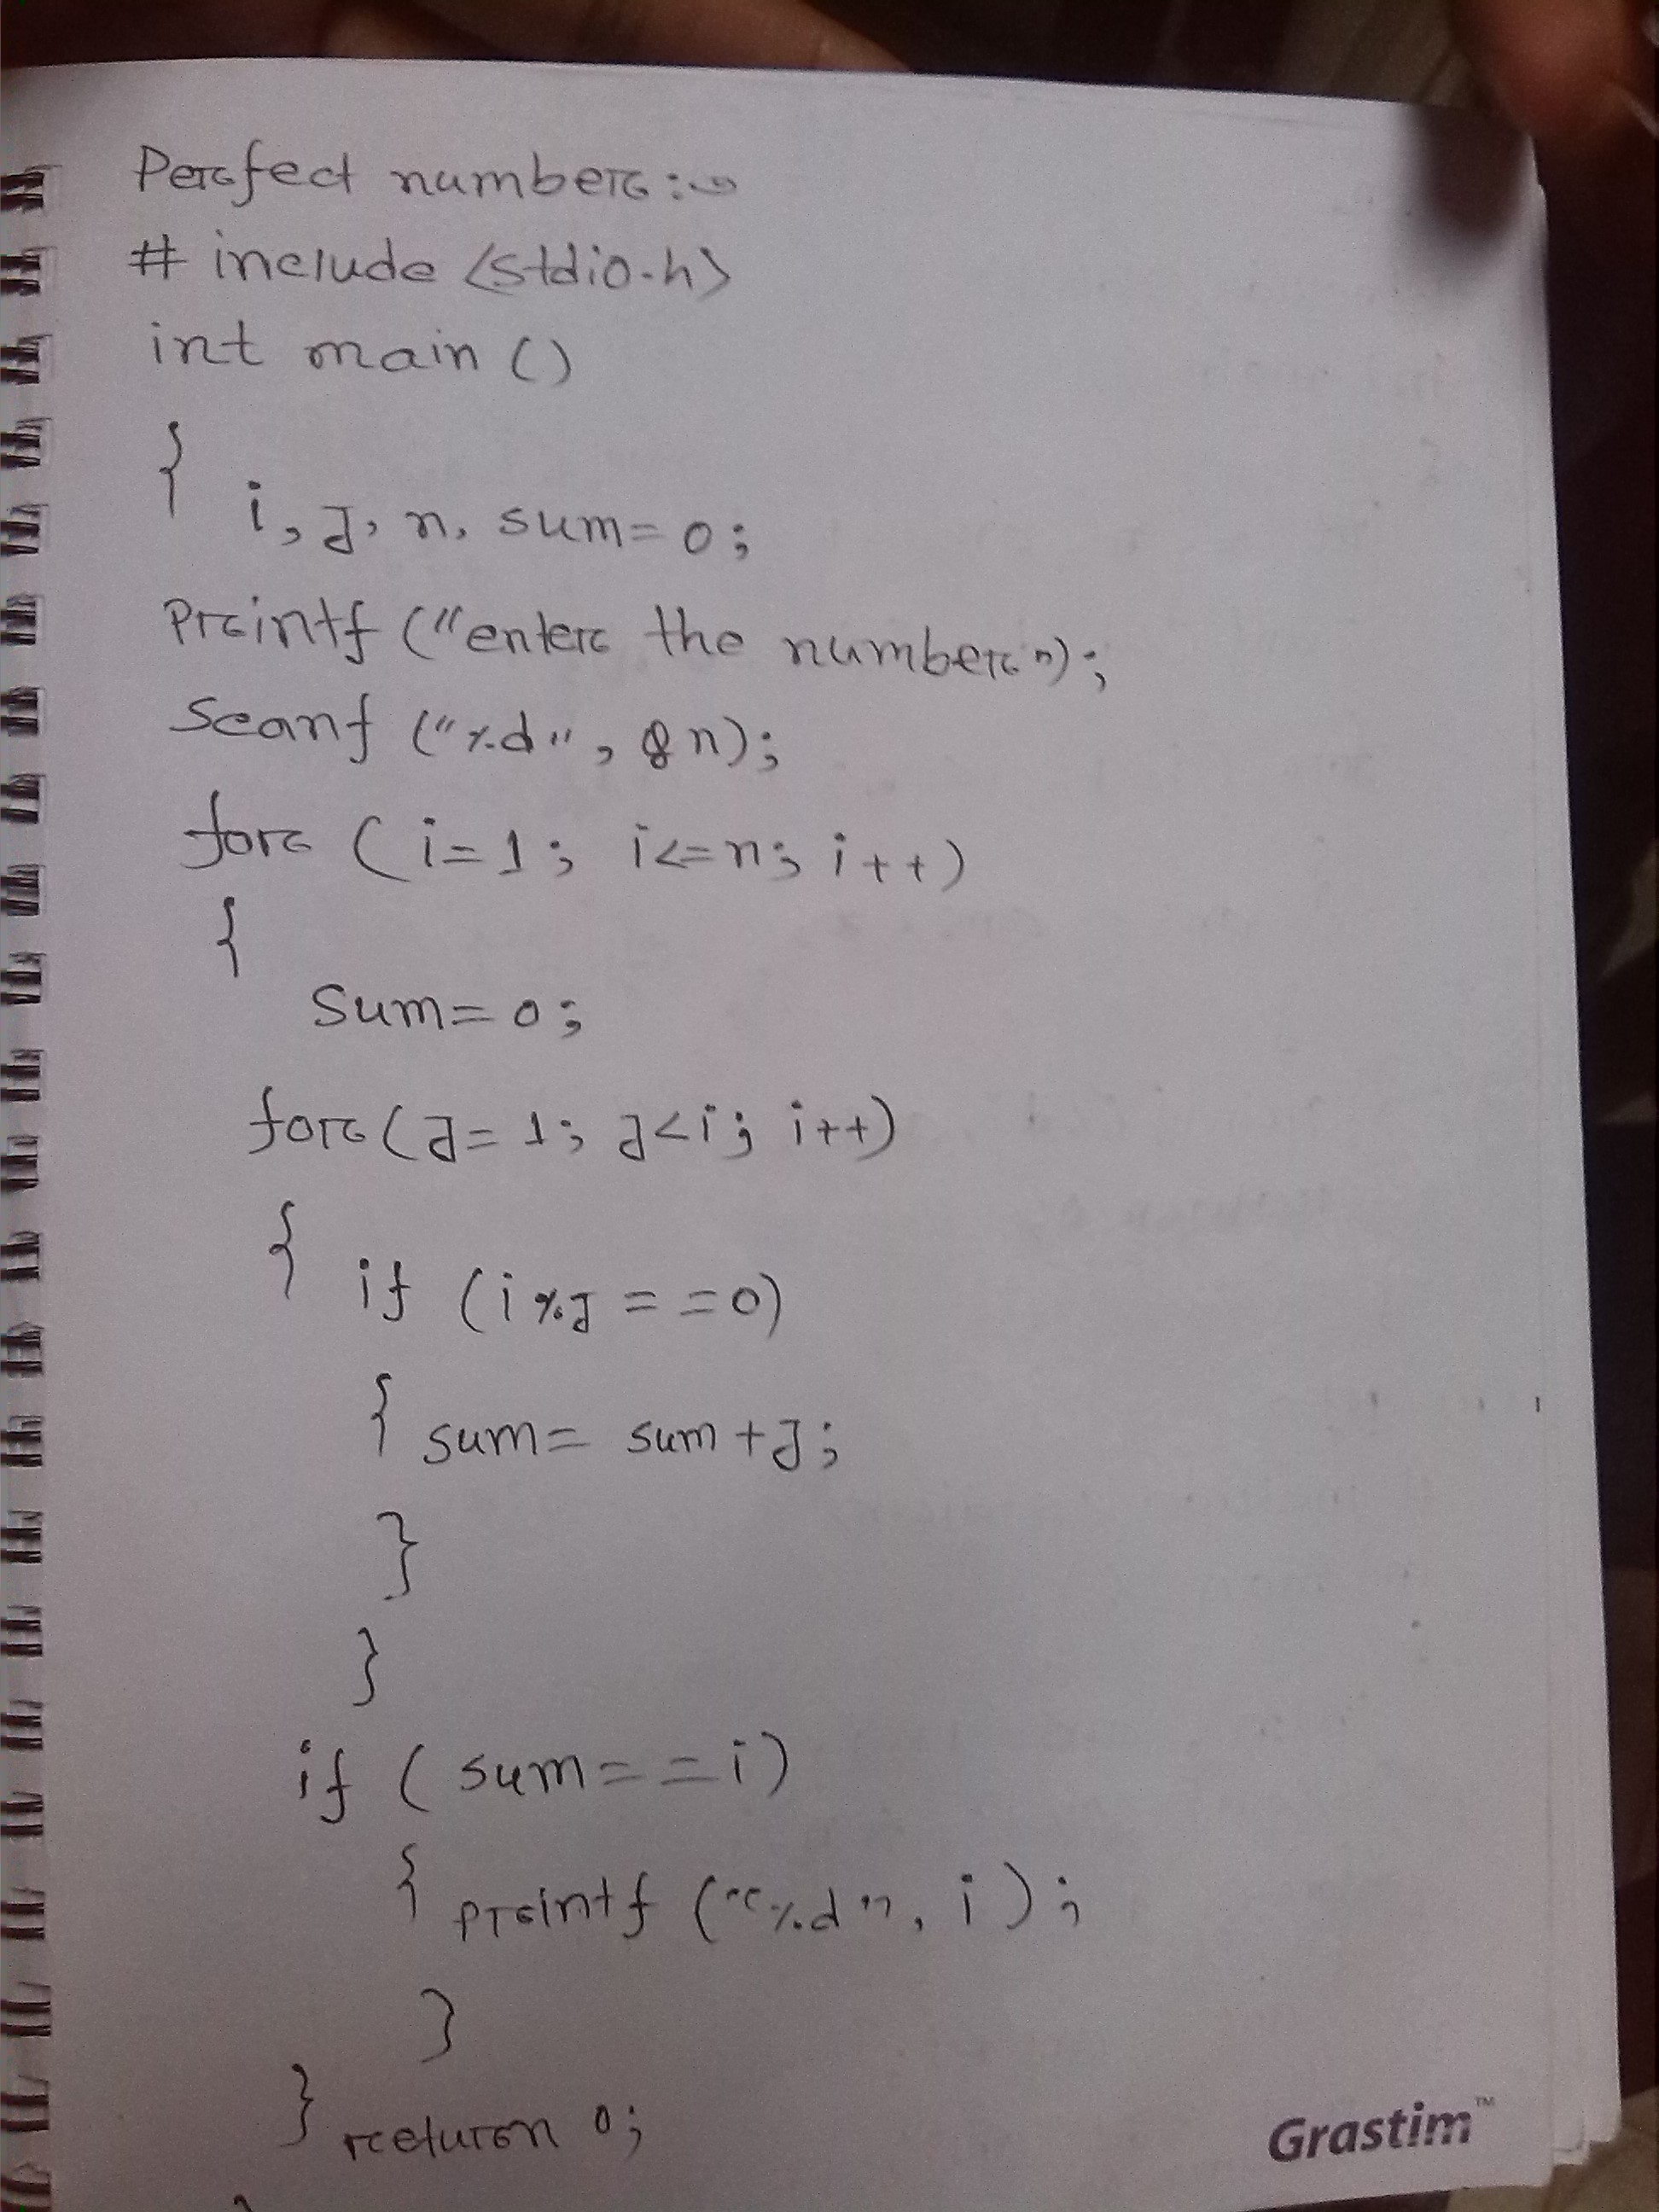 Perfect number :-
# include <stdio.h>
int main ()
{
i, J, n, sum = 0;
Printf ("enter the number");
Scanf ("%d", &n);
for ( i = 1 ; i <= n; i + +)
{
Sum = 0 ;
for ( J = 1; J < i ; i ++)
{
if (i % J = = 0)
{ sum = sum + J ;
}
}
if ( sum = = i )
{ printf ("%d", i ) ;
}
} return 0 ;
}
Grastim™